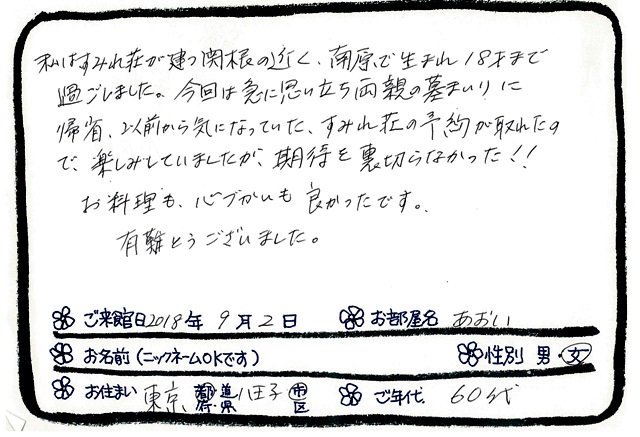 私はすみれ荘が建つ関根の近く、南原で生まれ18才まで
過ごしました。今回は急に思い立ち両親の墓まいりに
帰省、以前から気になっていた、すみれ荘の予約が取れたの
で、楽しみしていましたが、期待を裏切らなかった!!
お料理も、心づかいも良かったです。
有難とうございました。
ご来館日2018年9月2日 お部屋名 あおい
お名前(ニックネームOKです) 性別 男・女
お住まい 東京 都道府県 八王子 市区 ご年代 60代